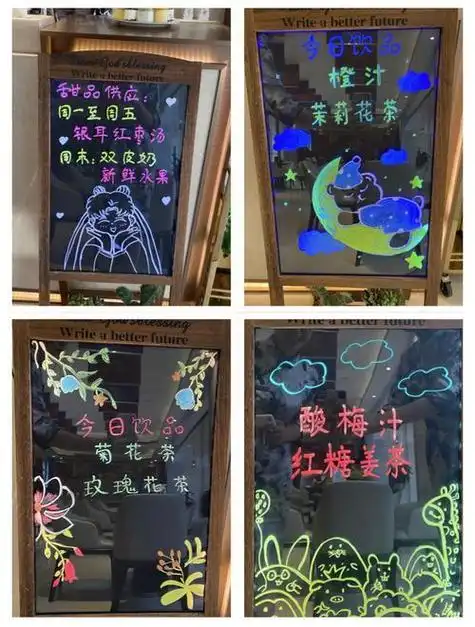 God blessing
Write a better future
甜品供应：
周一至周五
银耳红枣汤
周末：双皮奶
新鲜水果
Write a better future
今日饮品
橙汁
茉莉花茶
God blessing
Write a better future
今日饮品
菊花茶
玫瑰花茶
Write a better future
酸梅汁
红糖姜茶